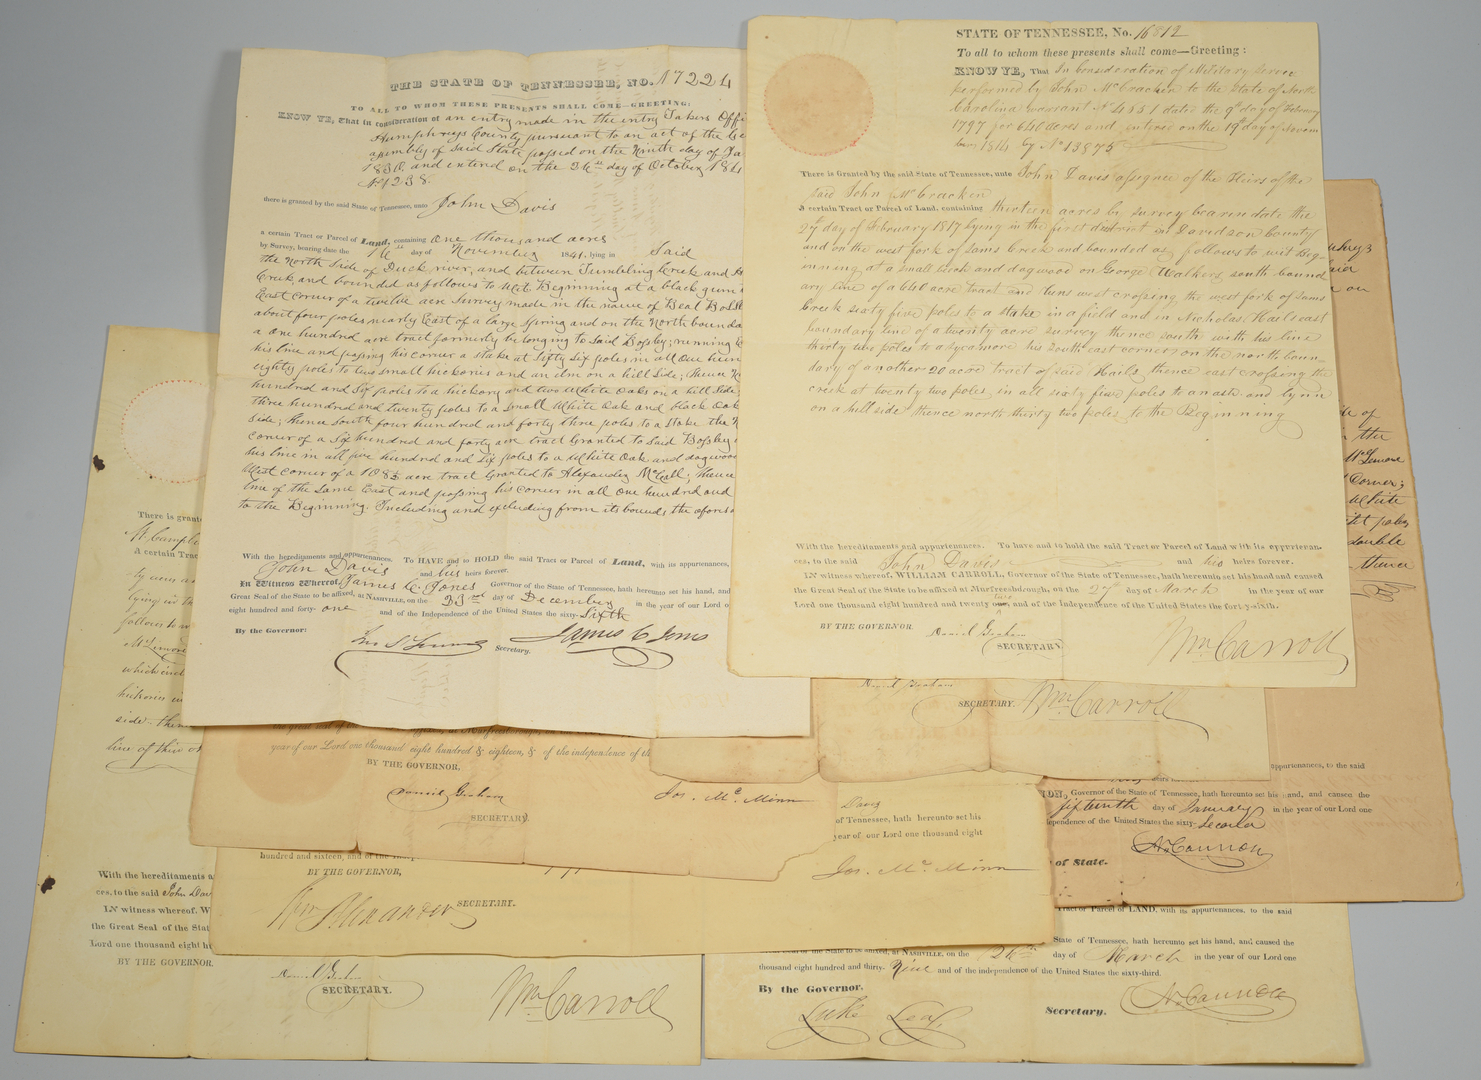 THE STATE OF TENNESSEE, NO. 17224
TO ALL TO WHOM THESE PRESENTS SHALL COME—GREETING:
KNOW YE, That in consideration of an entry made in the entry Takers Offi
Humphreys County pursuant to an act of the Ge
assembly of Said State passed on the Ninth day of Ja
1830, and entered on the day of October 184
No 1238.
there is granted by the said State of Tennessee, unto John Davis
a certain Tract or Parcel of Land, containing One thousand acres
by Survey, bearing date the day of November 1841. lying in Said
the North Side of Duck river, and between Tumbling Creek and
Creek, and bounded as follows to wit. Beginning at a black gum
East Corner of a twelve acre Survey made in the name of Beal
about four poles nearly East of a large Spring and on the North bounda
a one hundred acre tract formerly belonging to Said Bosley; running
his line and passing his corner a stake at Fifty Six poles in all One hun
eighty poles to two small hickories and an elm on a hill Side; thence
hundred and Six poles to a hickory and two White Oaks on a hill Side
three hundred and twenty poles to a Small White Oak and black Oak
Side; thence South four hundred and forty three poles to a stake the
Corner of a Six hundred and forty acre tract Granted to Said Bosley
his line in all five hundred and Six poles to a White Oak and dogwood
West corner of a acre tract Granted to Alexander McCall; thence
line of the Same East and passing his corner in all One hundred and
to the Beginning. Including and excluding from its bounds the afores
With the hereditaments and appurtenances. To HAVE and to HOLD the said Tract or Parcel of Land, with its appurtenances,
John Davis and his heirs forever.
In Witness Whereof, James C. Jones Governor of the State of Tennessee, hath hereunto set his hand, and
Great Seal of the State to be affixed, at NASHVILLE, on the 23rd day of December in the year of our Lord o
eight hundred and forty-one and of the Independence of the United States the sixty-Sixth
By the Governor:
James C Jones
Secretary.
STATE OF TENNESSEE, No. 16812
To all to whom these presents shall come—Greeting:
KNOW YE, That In Consideration of Military Service
performed by John McCracken to the State of North
Carolina Warrant No 4651 dated the 9th day of February
1797 for 640 acres and entered on the 19th day of Novem
ber 1814 by No 13875
There is Granted by the said State of Tennessee, unto John Davis assignee of the Heirs of the
said John McCracken
A certain Tract or Parcel of Land, containing thirteen acres by survey bearing date the
27th day of February 1817 lying in the first district in Davidson County
and on the west fork of Sams Creek and bounded as follows to wit Beg-
inning at a small beech and dogwood on George Walkers south bound
ary line of a 640 acre tract and runs west crossing the west fork of Sams
Creek sixty five poles to a stake in a field and in Nicholas Hails east
boundary line of a twenty acre survey thence south with his line
thirty two poles to a sycamore his south east corner on the north boun-
dary of another 20 acre tract of said Hails thence east crossing the
creek at twenty two poles in all sixty five poles to an ash and lynn
on a hill side thence north thirty two poles to the Beginning
With the hereditaments and appurtenances. To have and to hold the said Tract or Parcel of Land with its appurtenan-
ces, to the said John Davis and his heirs forever.
IN witness whereof, WILLIAM CARROLL, Governor of the State of Tennessee, hath hereunto set his hand and caused
the Great Seal of the State to be affixed at Murfreesborough, on the 2nd day of March in the year of our
Lord one thousand eight hundred and twenty two, and of the Independence of the United States the forty-sixth.
BY THE GOVERNOR.
Daniel Graham
SECRETARY.
Wm Carroll
There is grant
A certain Trac
lying in th
follows to w
McLemore
which incl
hickories
side-then
line of this
With the hereditaments a
ces, to the said John Dav
IN witness whereof. W
the Great Seal of the Stat
Lord one thousand eight h
BY THE GOVERNOR.
Daniel Graham
SECRETARY.
Wm Carroll
year of our Lord one thousand eight hundred & eighteen, & of the independence of th
BY THE GOVERNOR.
Daniel Graham
SECRETARY.
Jos. McMinn
hundred and sixteen, and of the
BY THE GOVERNOR,
Wm Alexander SECRETARY.
Davis
of Tennessee, hath hereunto set his
year of our Lord one thousand eight
Jos. McMinn
Daniel Graham
SECRETARY.
Wm Carroll
of
the
McLemore
Corner;
White
poles
double
thence
appurtenances, to the said
heirs forever.
ON, Governor of the State of Tennessee, hath hereunto set his hand, and caused the
fifteenth day of January in the year of our Lord one
dependence of the United States the sixty-Second
N. Cannon
of State.
Tract or Parcel of LAND, with its appurtenances, to the said
State of Tennessee, hath hereunto set his hand, and caused the
of the State to be affixed, at NASHVILLE, on the 26th day of March in the year of our Lord one
thousand eight hundred and thirty-Nine and of the independence of the United States the sixty-third.
By the Governor.
Luke Lea
Secretary.
N. Cannon